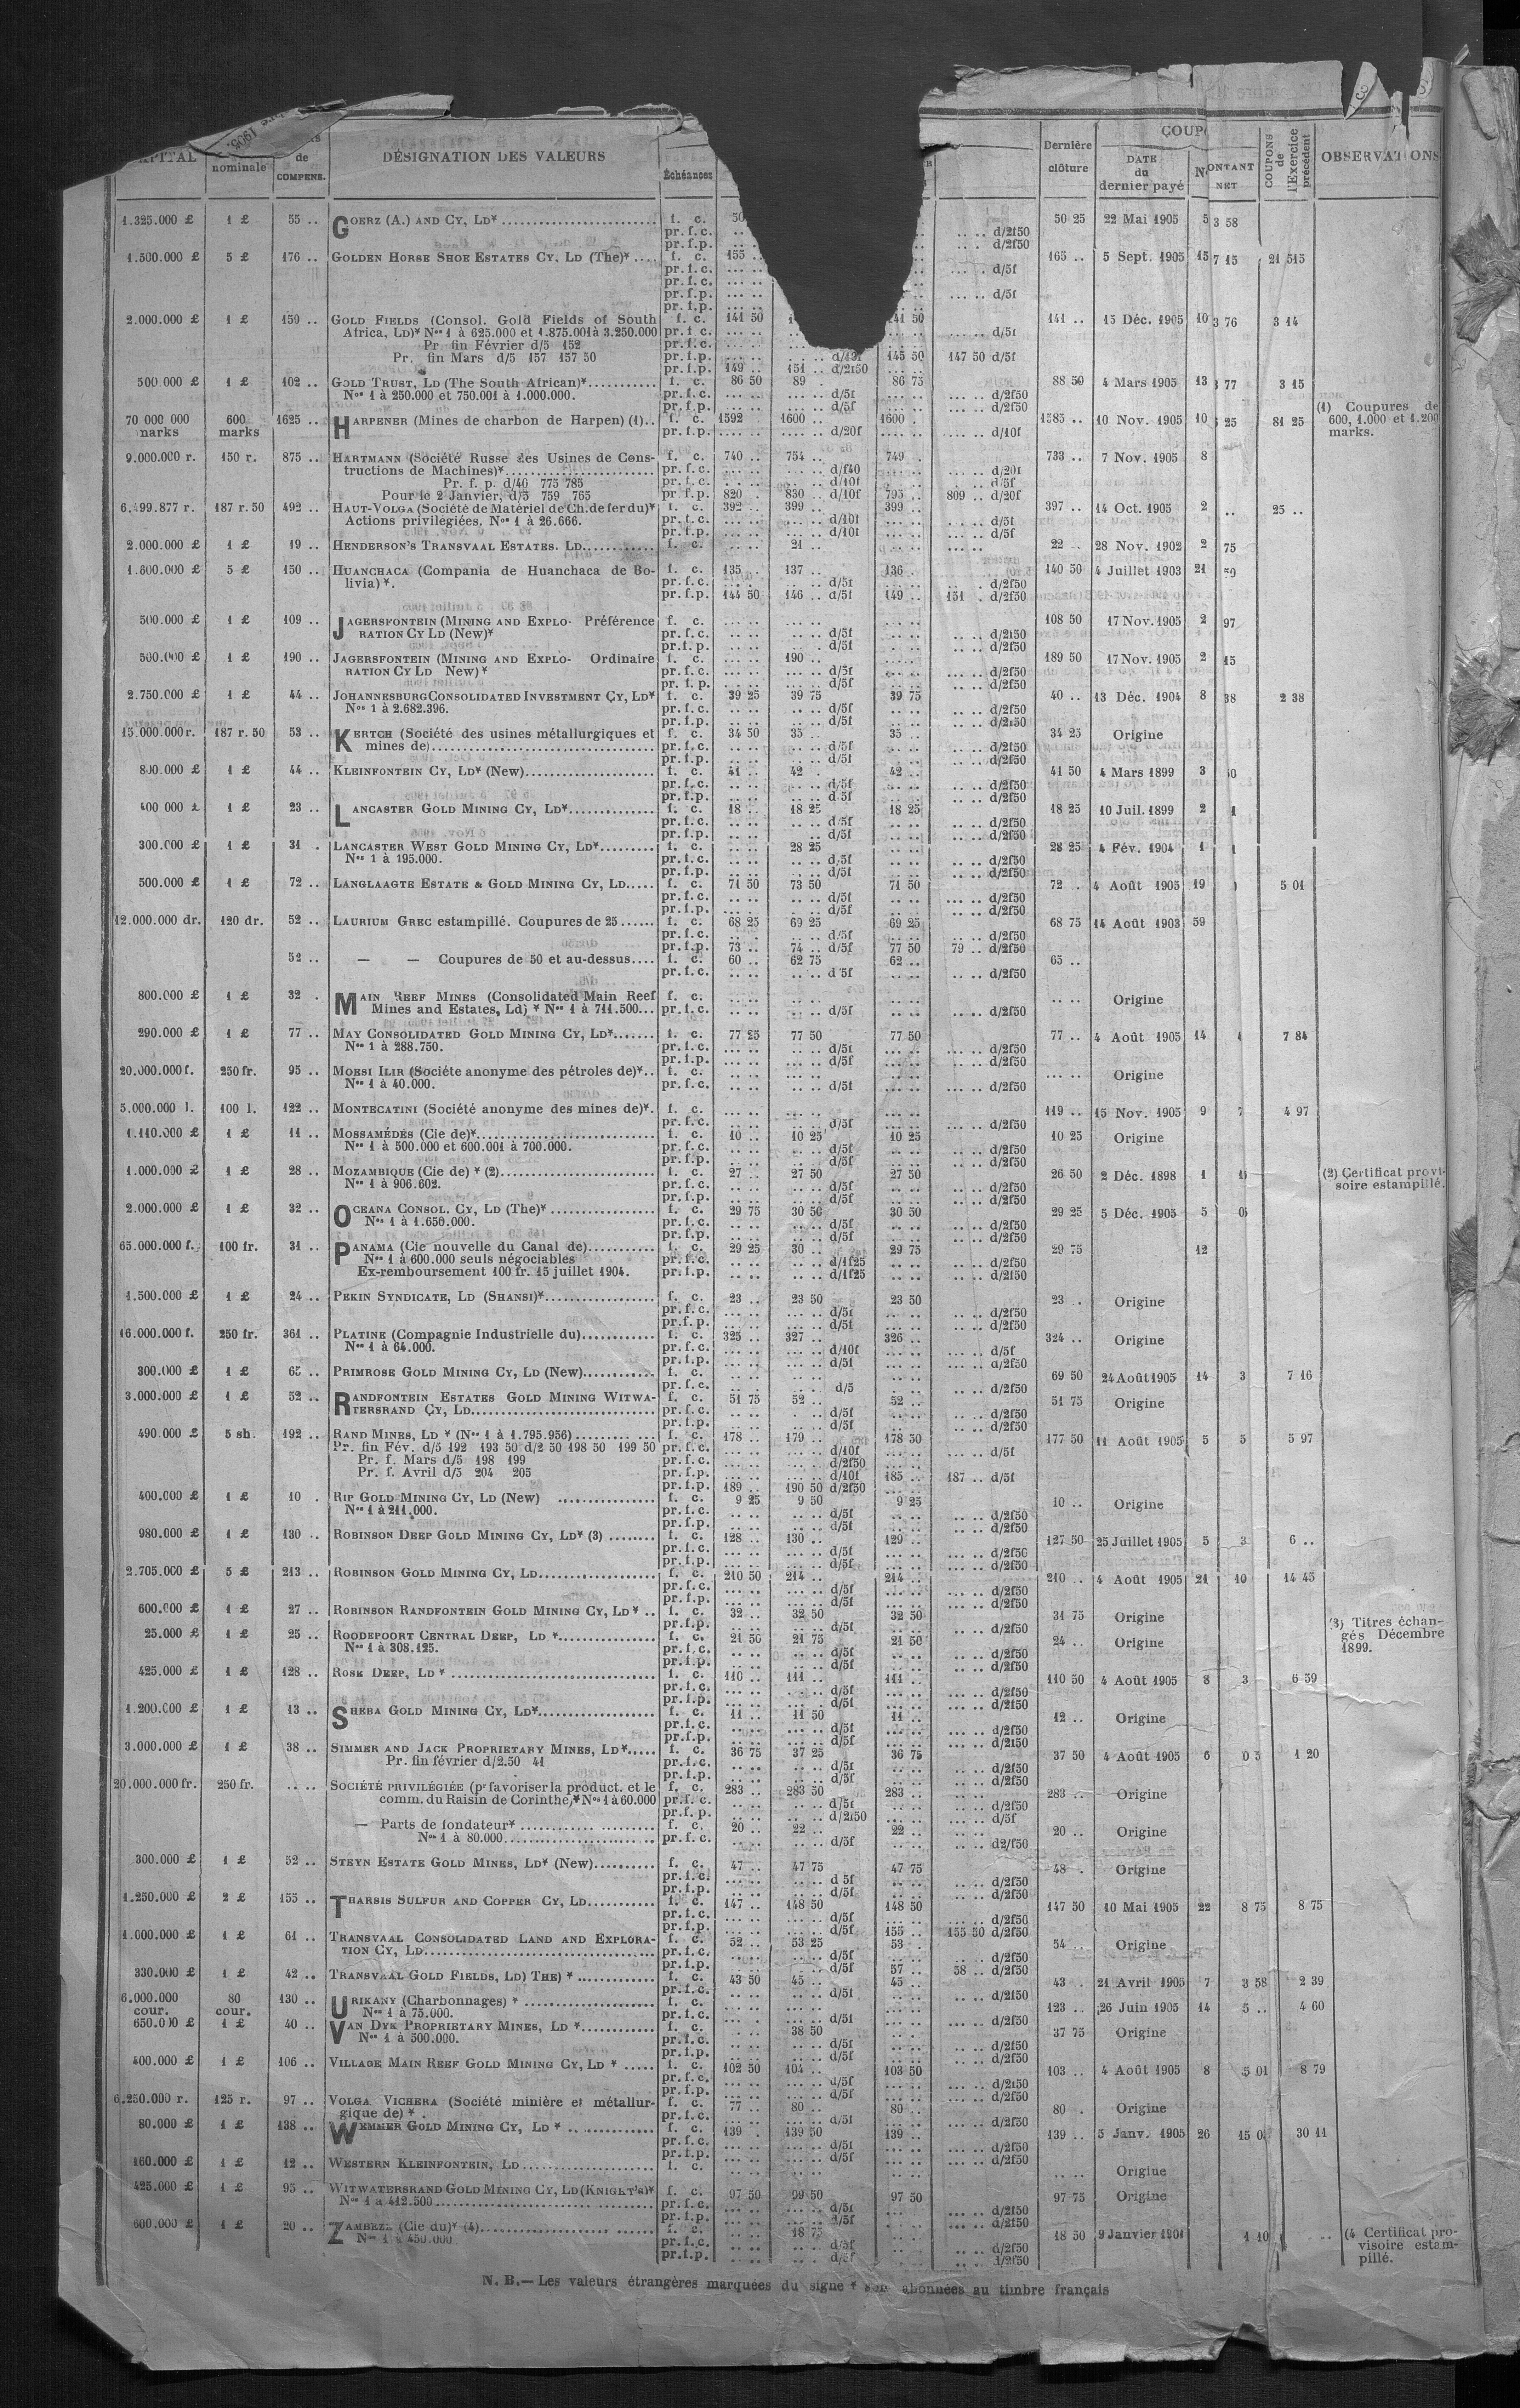 CAPITAL nominale de COMPENS. DÉSIGNATION DES VALEURS Échéances Dernière clôture COUP DATE du dernier payé N ONTANT NET COUPONS de l'Exercice précédent OBSERVATIONS
1.325.000 £ 1 £ 55 .. GOERZ (A.) AND CY, LD* f. c. 50 50 25 22 Mai 1905 5 3 58
pr. f. c. d/2f50
pr. f. p. d/2f50
1.500.000 £ 5 £ 176 .. GOLDEN HORSE SHOE ESTATES CY. LD (The)* f. c. 155 165 .. 5 Sept. 1905 15 7 15 21 515
pr. f. c. d/5f
pr. f. c.
pr. f. p. d/5f
pr. f. p.
2.000.000 £ 1 £ 159 .. GOLD FIELDS (Consol. Gold Fields of South f. c. 141 50 141 .. 15 Déc. 1905 10 3 76 3 14
Africa, LD)* Nos 1 à 625.000 et 1.875.001 à 3.250.000 pr. f. c. d/5f
Pr. fin Février d/5 152 pr. f. c.
Pr. fin Mars d/5 157 157 50 pr. f. p. 145 50 147 50 d/5f
pr. f. p. 149 .. 151 .. d/2f50
500.000 £ 1 £ 102 .. GOLD TRUST, LD (The South African)* f. c. 86 50 89 . 86 75 88 50 4 Mars 1905 13 3 77 3 15
Nos 1 à 250.000 et 750.001 à 1.000.000. pr. f. c. d/5f d/2f50
pr. f. p. d/5f d/2f50
70 000 000 marks 600 marks 1625 .. HARPENER (Mines de charbon de Harpen) (1).. f. c. 1592 1600 .. 1600 . 1585 .. 10 Nov. 1905 10 25 81 25 (1) Coupures de 600, 1.000 et 1.200 marks.
pr. f. p. d/20f d/10f
9.000.000 r. 150 r. 875 .. HARTMANN (Société Russe des Usines de Cons- f. c. 740 .. 754 .. 749 . 733 .. 7 Nov. 1905 8
tructions de Machines)* pr. f. c. d/f40 d/20f
Pr. f. p. d/40 775 785 pr. f. c. d/10f d/5f
Pour le 2 Janvier, d/5 759 765 pr. f. p. 820 . 830 .. d/10f 795 .. 809 .. d/20f
6.499.877 r. 187 r. 50 492 .. HAUT-VOLGA (Société de Matériel de Ch. de fer du)* f. c. 392 .. 399 .. 399 .. 397 .. 14 Oct. 1905 2 .. 25 ..
Actions privilégiées. Nos 1 à 26.666. pr. f. c. d/10f d/5f
pr. f. p. d/10f d/5f
2.000.000 £ 1 £ 19 .. HENDERSON'S TRANSVAAL ESTATES. LD f. c. 21 .. 22 .. 28 Nov. 1902 2 75
1.600.000 £ 5 £ 150 .. HUANCHACA (Compania de Huanchaca de Bo- f. c. 135 . 137 .. 136 . 140 50 4 Juillet 1903 21
livia)*. pr. f. c. d/5f d/2f50
pr. f. p. 144 50 146 .. d/5f 149 .. 151 . d/2f50
500.000 £ 1 £ 109 .. JAGERSFONTEIN (MINING AND EXPLO- Préférence f. c. 108 50 17 Nov. 1905 2 97
RATION CY LD (New)* pr. f. c. d/5f d/2f50
pr. f. p. d/5f d/2f50
500.000 £ 1 £ 190 .. JAGERSFONTEIN (MINING AND EXPLO- Ordinaire f. c. 190 .. 189 50 17 Nov. 1905 2 15
RATION CY LD New)* pr. f. c. d/5f d/2f50
pr. f. p. d/5f d/2f50
2.750.000 £ 1 £ 44 .. JOHANNESBURG CONSOLIDATED INVESTMENT CY, LD* f. c. 39 25 39 75 39 75 40 .. 13 Déc. 1904 8 38 2 38
Nos 1 à 2.682.396. pr. f. c. d/5f d/2f50
pr. f. p. d/5f d/2f50
15.000.000 r. 187 r. 50 53 .. KERTCH (Société des usines métallurgiques et f. c. 34 50 35 .. 35 .. 34 25 Origine
mines de) pr. f. c. d/5f d/2f50
pr. f. p. d/5f d/2f50
800.000 £ 1 £ 44 .. KLEINFONTEIN CY, LD* (New) f. c. 41 .. 42 . 42 .. 41 50 4 Mars 1899 3
pr. f. c. d/5f d/2f50
pr. f. p. d/5f d/2f50
400 000 £ 1 £ 23 .. LANCASTER GOLD MINING CY, LD* f. c. 18 .. 18 25 18 25 18 25 10 Juil. 1899 2
pr. f. c. d/5f d/2f50
pr. f. p. d/5f d/2f50
300.000 £ 1 £ 31 . LANCASTER WEST GOLD MINING CY, LD* f. c. 28 25 28 25 4 Fév. 1904 1
Nos 1 à 195.000. pr. f. c. d/5f d/2f50
pr. f. p. d/5f d/2f50
500.000 £ 1 £ 72 .. LANGLAAGTE ESTATE & GOLD MINING CY, LD f. c. 71 50 73 50 71 50 72 . 4 Août 1905 19 5 01
pr. f. c. d/5f d/2f50
pr. f. p. d/5f d/2f50
12.000.000 dr. 120 dr. 52 .. LAURIUM GREC estampillé. Coupures de 25 f. c. 68 25 69 25 69 25 68 75 14 Août 1903 59
pr. f. c. d/5f d/2f50
pr. f. p. 73 .. 74 .. d/5f 77 50 79 .. d/2f50
52 .. — — Coupures de 50 et au-dessus f. c. 60 .. 62 75 62 .. 65 ..
pr. f. c. d/5f d/2f50
800.000 £ 1 £ 32 . MAIN REEF MINES (Consolidated Main Reef f. c. Origine
Mines and Estates, Ld) * Nos 1 à 711.500 pr. f. c. d/5f d/2f50
290.000 £ 1 £ 77 .. MAY CONSOLIDATED GOLD MINING CY, LD* f. c. 77 25 77 50 77 50 77 .. 4 Août 1905 14 7 84
Nos 1 à 288.750. pr. f. c. d/5f d/2f50
pr. f. p. d/5f d/2f50
20.000.000 f. 250 fr. 95 .. MOESI ILIR (Société anonyme des pétroles de)* f. c. Origine
Nos 1 à 40.000. pr. f. c. d/5f d/2f50
5.000.000 l. 100 l. 122 .. MONTECATINI (Société anonyme des mines de)*. f. c. 119 .. 15 Nov. 1905 9 7 4 97
pr. f. c. d/5f d/2f50
1.110.000 £ 1 £ 11 .. MOSSAMÉDÉS (Cie de)* f. c. 10 .. 10 25 10 25 10 25 Origine
Nos 1 à 500.000 et 600.001 à 700.000. pr. f. c. d/5f d/2f50
pr. f. p. d/5f d/2f50
1.000.000 £ 1 £ 28 .. MOZAMBIQUE (Cie de) * (2) f. c. 27 .. 27 50 27 50 26 50 2 Déc. 1898 1 (2) Certificat provi-
Nos 1 à 906.602. pr. f. c. d/5f d/2f50 soire estampillé.
pr. f. p. d/5f d/2f50
2.000.000 £ 1 £ 32 .. OCEANA CONSOL. CY, LD (The)* f. c. 29 75 30 50 30 50 29 25 5 Déc. 1905 5
Nos 1 à 1.650.000. pr. f. c. d/5f d/2f50
pr. f. p. d/5f d/2f50
65.000.000 f. 100 fr. 31 .. PANAMA (Cie nouvelle du Canal de) f. c. 29 25 30 .. 29 75 29 75 12
Nos 1 à 600.000 seuls négociables pr. f. c. d/1f25 d/2f50
Ex-remboursement 100 fr. 15 juillet 1904. pr. f. p. d/1f25 d/2f50
1.500.000 £ 1 £ 24 .. PEKIN SYNDICATE, LD (SHANSI)* f. c. 23 .. 23 50 23 50 23 . Origine
pr. f. c. d/5f d/2f50
pr. f. p. d/5f d/2f50
16.000.000 f. 250 fr. 361 .. PLATINE (Compagnie Industrielle du) f. c. 325 .. 327 .. 326 .. 324 .. Origine
Nos 1 à 64.000. pr. f. c. d/10f d/5f
pr. f. p. d/5f d/2f50
300.000 £ 1 £ 65 .. PRIMROSE GOLD MINING CY, LD (New) f. c. 69 50 24 Août 1905 14 3 7 16
pr. f. c. d/5 d/2f50
3.000.000 £ 1 £ 52 .. RANDFONTEIN ESTATES GOLD MINING WITWA- f. c. 51 75 52 .. 52 .. 51 75 Origine
TERSRAND CY, LD pr. f. c. d/5f d/2f50
pr. f. p. d/5f d/2f50
490.000 £ 5 sh. 192 .. RAND MINES, LD * (Nos 1 à 1.795.956) f. c. 178 .. 179 .. 178 50 177 50 11 Août 1905 5 5 5 97
Pr. fin Fév. d/5 192 193 50 d/2 50 198 50 199 50 pr. f. c. d/10f d/5f
Pr. f. Mars d/5 198 199 pr. f. c. d/2f50
Pr. f. Avril d/5 204 205 pr. f. p. d/10f 185 .. 187 .. d/5f
pr. f. p. 189 .. 190 50 d/2f50
400.000 £ 1 £ 10 . RIP GOLD MINING CY, LD (New) f. c. 9 25 9 50 9 25 10 .. Origine
Nos 1 à 211.000. pr. f. c. d/5f d/2f50
pr. f. p. d/5f d/2f50
980.000 £ 1 £ 130 .. ROBINSON DEEP GOLD MINING CY, LD* (3) f. c. 128 .. 130 .. 129 .. 127 50 25 Juillet 1905 5 3 6 ..
pr. f. c. d/5f d/2f50
pr. f. p. d/5f d/2f50
2.705.000 £ 5 £ 213 .. ROBINSON GOLD MINING CY, LD f. c. 210 50 214 .. 214 .. 210 .. 4 Août 1905 21 10 14 45
pr. f. c. d/5f d/2f50
pr. f. p. d/5f d/2f50
600.000 £ 1 £ 27 .. ROBINSON RANDFONTEIN GOLD MINING CY, LD * f. c. 32 .. 32 50 32 50 31 75 Origine (3) Titres échan-
pr. f. p. d/5f d/2f50 gés Décembre
25.000 £ 1 £ 25 .. ROODEPOORT CENTRAL DEEP, LD * f. c. 21 50 21 75 21 50 24 .. Origine 1899.
Nos 1 à 308.125. pr. f. c. d/5f d/2f50
pr. f. p. d/5f d/2f50
425.000 £ 1 £ 128 .. ROSE DEEP, LD * f. c. 110 .. 111 .. 111 .. 110 50 4 Août 1905 8 3 6 59
pr. f. c. d/5f d/2f50
pr. f. p. d/5f d/2f50
1.200.000 £ 1 £ 13 .. SHEBA GOLD MINING CY, LD* f. c. 11 .. 11 50 11 .. 12 .. Origine
pr. f. c. d/5f d/2f50
pr. f. p. d/5f d/2f50
3.000.000 £ 1 £ 38 .. SIMMER AND JACK PROPRIETARY MINES, LD* f. c. 36 75 37 25 36 75 37 50 4 Août 1905 6 1 20
Pr. fin février d/2.50 41 pr. f. c. d/5f d/2f50
pr. f. p. d/5f d/2f50
20.000.000 fr. 250 fr. .. .. SOCIÉTÉ PRIVILÉGIÉE (pr favoriser la product. et le f. c. 283 .. 283 50 283 .. 283 .. Origine
comm. du Raisin de Corinthe)* Nos 1 à 60.000 pr. f. c. d/5f d/2f50
pr. f. p. d/2f50 d/5f
— Parts de fondateur* f. c. 20 .. 22 .. 22 .. 20 .. Origine
Nos 1 à 80.000 pr. f. c. d/5f d2/f50
300.000 £ 1 £ 52 .. STEYN ESTATE GOLD MINES, LD* (New) f. c. 47 .. 47 75 47 75 48 . Origine
pr. f. c. d 5f d/2f50
pr. f. p. d/5f d/2f50
1.250.000 £ 2 £ 155 .. THARSIS SULFUR AND COPPER CY, LD f. c. 147 .. 148 50 148 50 147 50 10 Mai 1905 22 8 75 8 75
pr. f. c. d/5f d/2f50
pr. f. p. d/5f 155 .. 155 50 d/2f50
1.000.000 £ 1 £ 61 .. TRANSVAAL CONSOLIDATED LAND AND EXPLORA- f. c. 52 .. 53 25 53 . 54 .. Origine
TION CY, LD pr. f. c. d/5f d/2f50
pr. f. p. d/5f 57 .. 58 .. d/2f50
330.000 £ 1 £ 42 .. TRANSVAAL GOLD FIELDS, LD) THE) * f. c. 43 50 45 .. 45 .. 43 . 21 Avril 1905 7 3 58 2 39
pr. f. c. d/5f d/2f50
6.000.000 cour. 80 cour. 130 .. URIKANY (Charbonnages) * f. c. 123 .. 26 Juin 1905 14 5 .. 4 60
Nos 1 à 75.000. pr. f. c. d/5f d/2f50
650.000 £ 1 £ 40 .. VAN DYK PROPRIETARY MINES, LD * f. c. 38 50 37 75 Origine
Nos 1 à 500.000. pr. f. c. d/5f d/2f50
pr. f. p. d/5f d/2f50
400.000 £ 1 £ 106 .. VILLAGE MAIN REEF GOLD MINING CY, LD * f. c. 102 50 104 .. 103 50 103 .. 4 Août 1905 8 5 01 8 79
pr. f. c. d/5f d/2f50
pr. f. p. d/5f d/2f50
6.250.000 r. 125 r. 97 .. VOLGA VICHERA (Société minière et métallur- f. c. 77 .. 80 .. 80 .. 80 . Origine
gique de) * . pr. f. c. d/5f d/2f50
80.000 £ 1 £ 138 .. WEMMER GOLD MINING CY, LD * f. c. 139 . 139 50 139 .. 139 .. 5 Janv. 1905 26 15 30 11
pr. f. c. d/5f d/2f50
pr. f. p. d/5f d/2f50
160.000 £ 1 £ 12 .. WESTERN KLEINFONTEIN, LD f. c. Origine
425.000 £ 1 £ 95 .. WITWATERSRAND GOLD MINING CY, LD (KNIGHT'S)* f. c. 97 50 99 50 97 50 97 75 Origine
Nos 1 à 412.500 pr. f. c. d/5f d/2f50
pr. f. p. d/5f d/2f50
600.000 £ 1 £ 20 .. ZAMBÈZE (Cie du)* (4) f. c. 18 75 18 50 9 Janvier 1901 1 10 (4 Certificat pro-
Nos 1 à 450.000 pr. f. c. d/5f d/2f50 visoire estam-
pr. f. p. d/5f d/2f50 pillé.
N. B.— Les valeurs étrangères marquées du signe * abonnées au timbre français